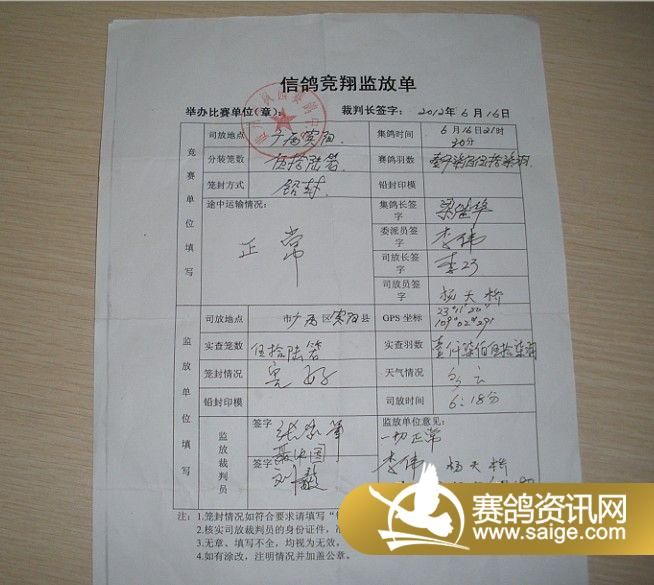 信鸽竞翔监放单
举办比赛单位(章): 裁判长签字: 2012年6月16日
竞赛单位填写
司放地点 广西宾阳 集鸽时间 6月16日21时30分
分装笼数 伍拾陆笼 赛鸽羽数 壹仟柒佰伍拾柒羽
笼封方式 铅封 铅封印模
途中运输情况: 集鸽长签字
正常 委派员签字 李伟
司放长签字
司放员签字 杨天桥
监放单位填写
司放地点 市广西区宾阳县 GPS坐标 23°11′20″
109°02′29″
实查笼数 伍拾陆笼 实查羽数 壹仟柒佰伍拾柒羽
笼封情况 完好 天气情况 多云
铅封印模 司放时间 6:18分
监放裁判员 签字 监放单位意见:
一切正常
签字 刘毅 李伟 杨天桥
注: 1.笼封情况如符合要求请填写"
2.核实司放裁判员的身份证件,
3.无章、填写不全,均视为无效,
4.如有涂改,注明情况并加盖公章。
赛鸽资讯网
www.saige.com